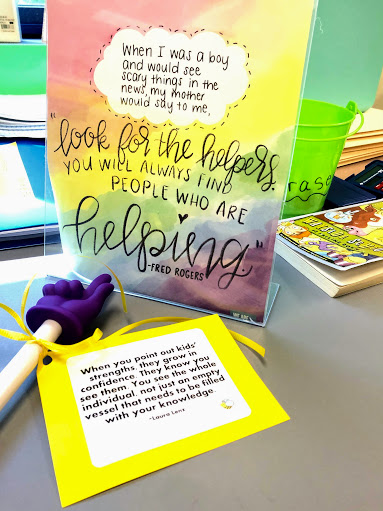 When I was a boy
and would see
scary things in the
news, my mother
would say to me,
"look for the helpers.
YOU WILL ALWAYS FIND
PEOPLE WHO ARE
helping."
-FRED ROGERS
erase
When you point out kids'
strengths, they grow in
confidence. They know you
see them. You see the whole
individual, not just an empty
vessel that needs to be filled
with your knowledge.
-Laura Lenz